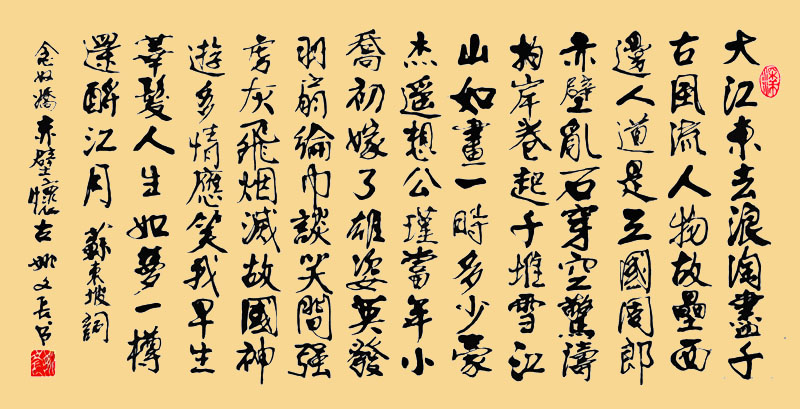 大江東去浪淘盡千
古風流人物故壘西
邊人道是三國周郎
赤壁亂石穿空驚濤
拍岸卷起千堆雪江
山如畫一時多少豪
杰遥想公瑾當年小
喬初嫁了雄姿英發
羽扇綸巾談笑間强
虜灰飛烟滅故國神
遊多情應笑我早生
華髮人生如夢一樽
還酹江月 蘇東坡詞
念奴嬌赤壁懷古 姚文長